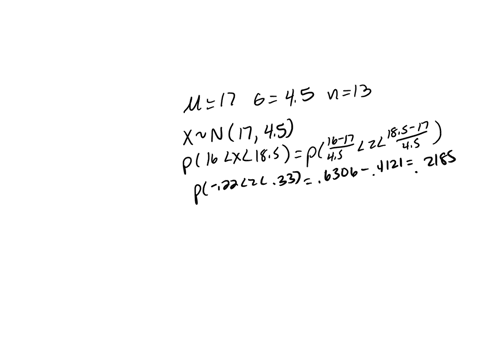 μ=17 σ=4.5 n=13
X~N(17,4.5)
P(16<X<18.5)=P(16-17/4.5<z<18.5-17/4.5)
P(-.22<z<.33)=.6306-.4121=.2185